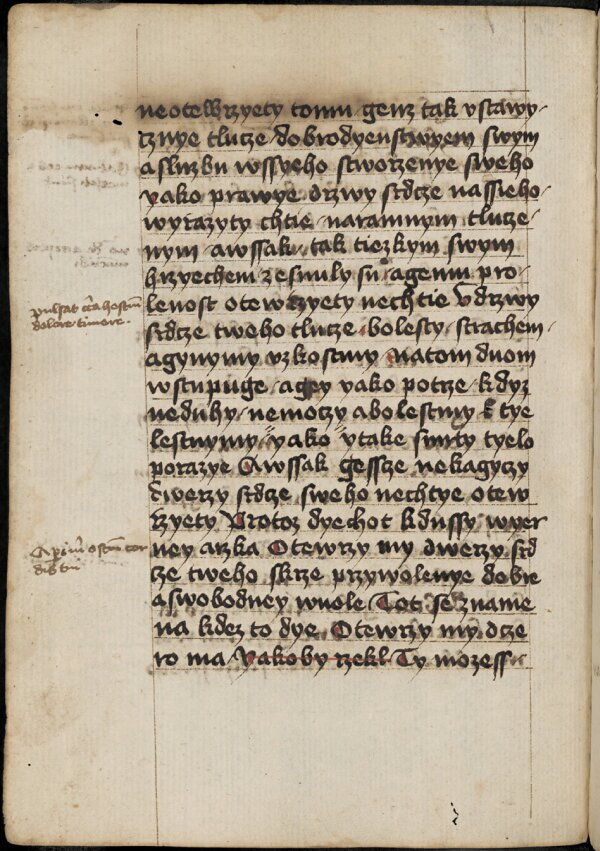 neotewrzyety tomu genz tak vstawy-
cznye tlucze dobrodyenstwyem swym
asluzbu wssyeho stworzenye sweho
yako prawye drzwy srdcze nassieho
wyrazyty chtie naramnym tlucze-
nym awssak tak tiezkym swym
hrzyechem zesnuly su agemu pro-
lenost otewrzyety nechtie Vdrzwy
srdcze tweho tlucze bolesty strachem
agynymy vzkostmy natom duom
wstupuge agey yako potrze kdyz
neduhy nemoczy abolestmy tye
lestnymy yako ytake smrty tyelo
porazye Awssak gessze nekagyczy
dwerzy srdcze sweho nechtye otew
rzyety Protoz dyechot kdussy wyer
ney arzka Otewrzy my dwerzy srd
cze tweho skrze przywolenye dobre
aswobodney wuole Tot se zname
na kdez to dye Otewrzy my dcze
ro ma Yakoby rzekl Ty mozess
pulsat
dolore timore.
Aperi